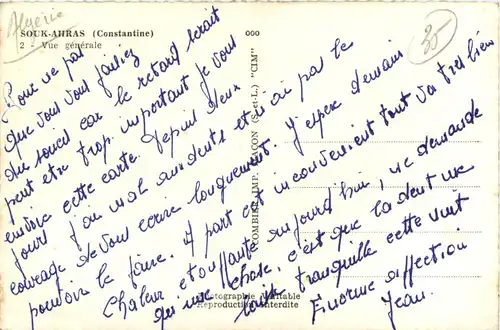 Algérie
SOUK-AHRAS (Constantine)
2 - Vue générale
000
35
COMBIER IMP. MACON (S.-et-L.) "CIM"
Photographie Véritable
Reproduction Interdite
Pour ne pas
que vous vous fassiez
du souci car le retard serait
peut être trop important je vous
envoie cette carte. Depuis deux
jours j'ai mal aux dents et n'ai pas le
courage de vous écrire longuement. J'espère demain
pouvoir le faire. A part cet inconvénient tout va très bien
Chaleur étouffante aujourd'hui, ne demande
qu'une chose, c'est que la dent me
laisse tranquille cette nuit
Enorme affection
Jean.